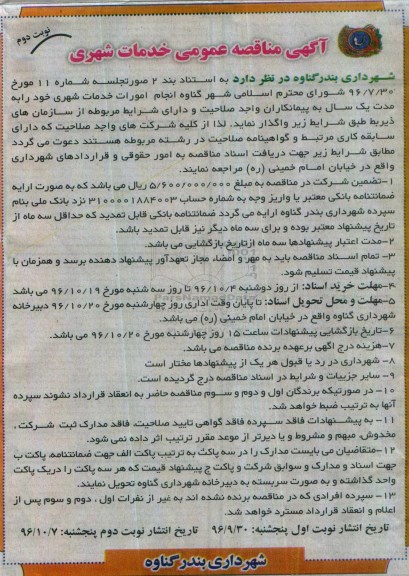 نوبت دوم
آگهی مناقصه عمومی خدمات شهری
شهرداری بندرگناوه در نظر دارد به استناد بند ۲ صورتجلسه شماره ۱۱ مورخ
۹۶/۷/۳۰ شورای محترم اسلامی شهر گناوه انجام امورات خدمات شهری خود را به
مدت یک سال به پیمانکاران واجد صلاحیت و دارای شرایط مربوطه از سازمان های
ذیربط طبق شرایط زیر واگذار نماید. لذا از کلیه شرکت های واجد صلاحیت که دارای
سابقه کاری مرتبط و گواهینامه صلاحیت در رشته مربوطه هستند دعوت می گردد
مطابق شرایط زیر جهت دریافت اسناد مناقصه به امور حقوقی و قراردادهای شهرداری
واقع در خیابان امام خمینی (ره) مراجعه نمایند.
۱-تضمین شرکت در مناقصه به مبلغ ۵/۶۰۰/۰۰۰/۰۰۰ ریال می باشد که به صورت ارایه
ضمانتنامه بانکی معتبر یا واریز وجه به شماره حساب ۳۱۰۰۰۰۱۸۸۴۰۰۳ نزد بانک ملی بنام
سپرده شهرداری بندر گناوه ارایه می گردد ضمانتنامه بانکی قابل تمدید که حداقل سه ماه از
تاریخ پیشنهاد معتبر بوده و برای سه ماه دیگر نیز قابل تمدید باشد.
۲-مدت اعتبار پیشنهادها سه ماه ازتاریخ بازگشایی می باشد.
۳- تمام اسناد مناقصه باید به مهر و امضاء مجاز تعهدآور پیشنهاد دهنده برسد و همزمان با
پیشنهاد قیمت تسلیم شود.
۴-مهلت خرید اسناد: از روز دوشنبه ۹۶/۱۰/۴ تا روز سه شنبه مورخ ۹۶/۱۰/۱۹ می باشد
۵-مهلت و محل تحویل اسناد: تا پایان وقت اداری روز چهارشنبه مورخ ۹۶/۱۰/۲۰ دبیرخانه
شهرداری گناوه واقع در خیابان امام خمینی (ره) می باشد.
۶-تاریخ بازگشایی پیشنهادات ساعت ۱۵ روز چهارشنبه مورخ ۹۶/۱۰/۲۰ می باشد.
۷-هزینه درج آگهی برعهده برنده مناقصه می باشد.
۸- شهرداری در رد یا قبول هر یک از پیشنهادها مختار است
۹- سایر جزییات و شرایط در اسناد مناقصه درج گردیده است.
۱۰- در صورتیکه برندگان اول و دوم و سوم مناقصه حاضر به انعقاد قرارداد نشوند سپرده
آنها به ترتیب ضبط خواهد شد.
۱۱- به پیشنهادات فاقد سپرده فاقد گواهی تایید صلاحیت، فاقد مدارک ثبت شرکت ،
مخدوش، مبهم و مشروط و یا دیرتر از موعد مقرر ترتیب اثر داده نمی شود.
۱۲-متقاضیان می بایست مدارک را در سه پاکت به ترتیب پاکت الف جهت ضمانتنامه، پاکت ب
جهت اسناد و مدارک و سوابق شرکت و پاکت ج پیشنهاد قیمت که هر سه پاکت را دریک پاکت
واحد گذاشته و به صورت سربسته به دبیرخانه شهرداری گناوه تحویل نمایند.
۱۳- سپرده افرادی که در مناقصه برنده نشده اند به غیر از نفرات اول ، دوم و سوم پس از
اعلام و انعقاد قرارداد مسترد خواهد شد.
تاریخ انتشار نوبت اول پنجشنبه: ۹۶/۹/۳۰ تاریخ انتشار نوبت دوم پنجشنبه: ۹۶/۱۰/۷
شهرداری بندرگناوه